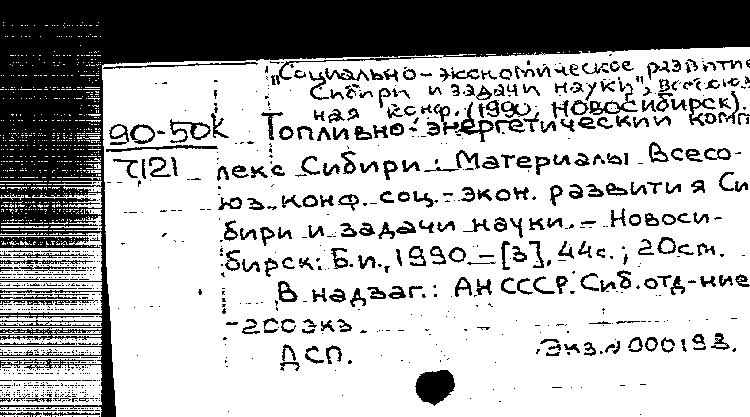 „Социально-экономическое развитие
Сибири и задачи науки", всесоюз
ная конф. (1990; Новосибирск).
90-50к Топливно-энергетический комп
7121 лекс Сибири: Материалы Всесо-
юз. конф. соц.-экон. развития Си
бири и задачи науки. – Новоси-
бирск: Б.и., 1990. – [3], 44с.; 20см.
В надзаг.: АН СССР. Сиб. отд-ние
-200экз.
ДСП. Экз. N 000193.